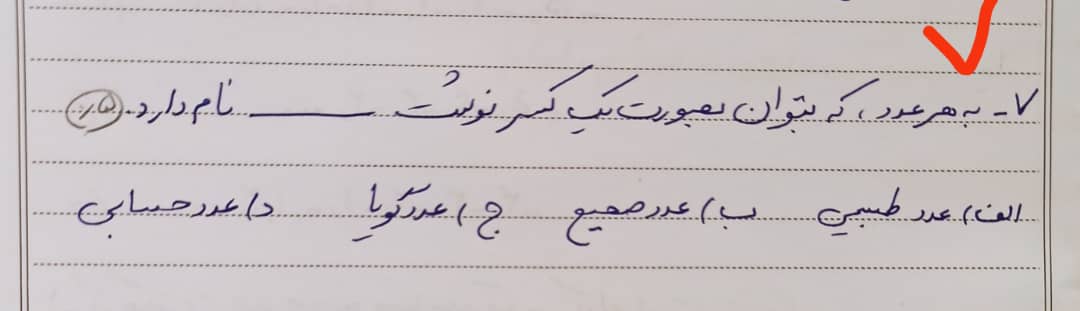 ۷- به هر عدد، که بتوان بصورت یک کسر نوشت ــــــــ نام دارد. (۰/۵)
الف) عدد طبیعی ب) عدد صحیح ج) عدد گویا د) عدد حسابی